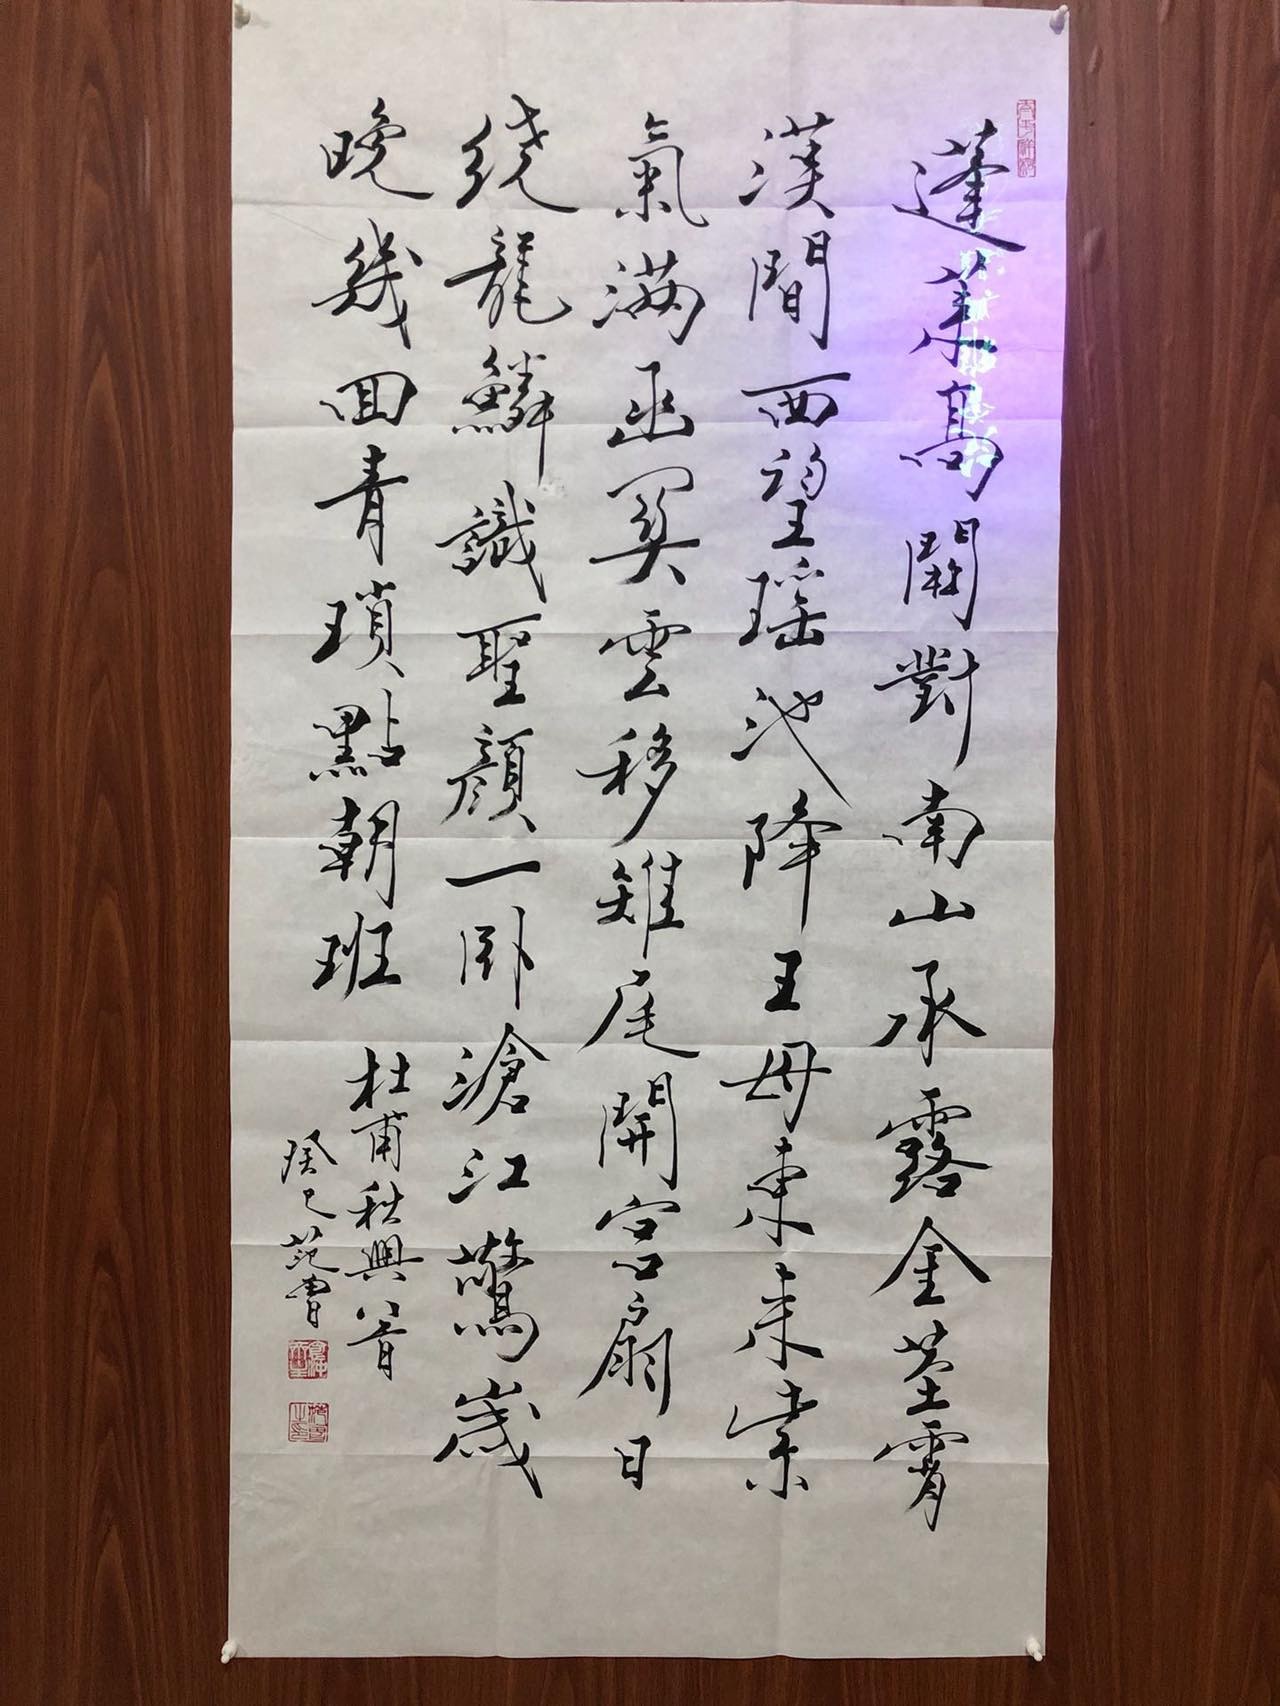 蓬莱高闕對南山承露金莖霄
漢間西望瑶池降王母東来紫
氣满函関雲移雉尾開宫扇日
绕龍鱗識聖顏一卧滄江驚歲
晚幾回青瑣點朝班
杜甫秋興八首
癸巳范曾